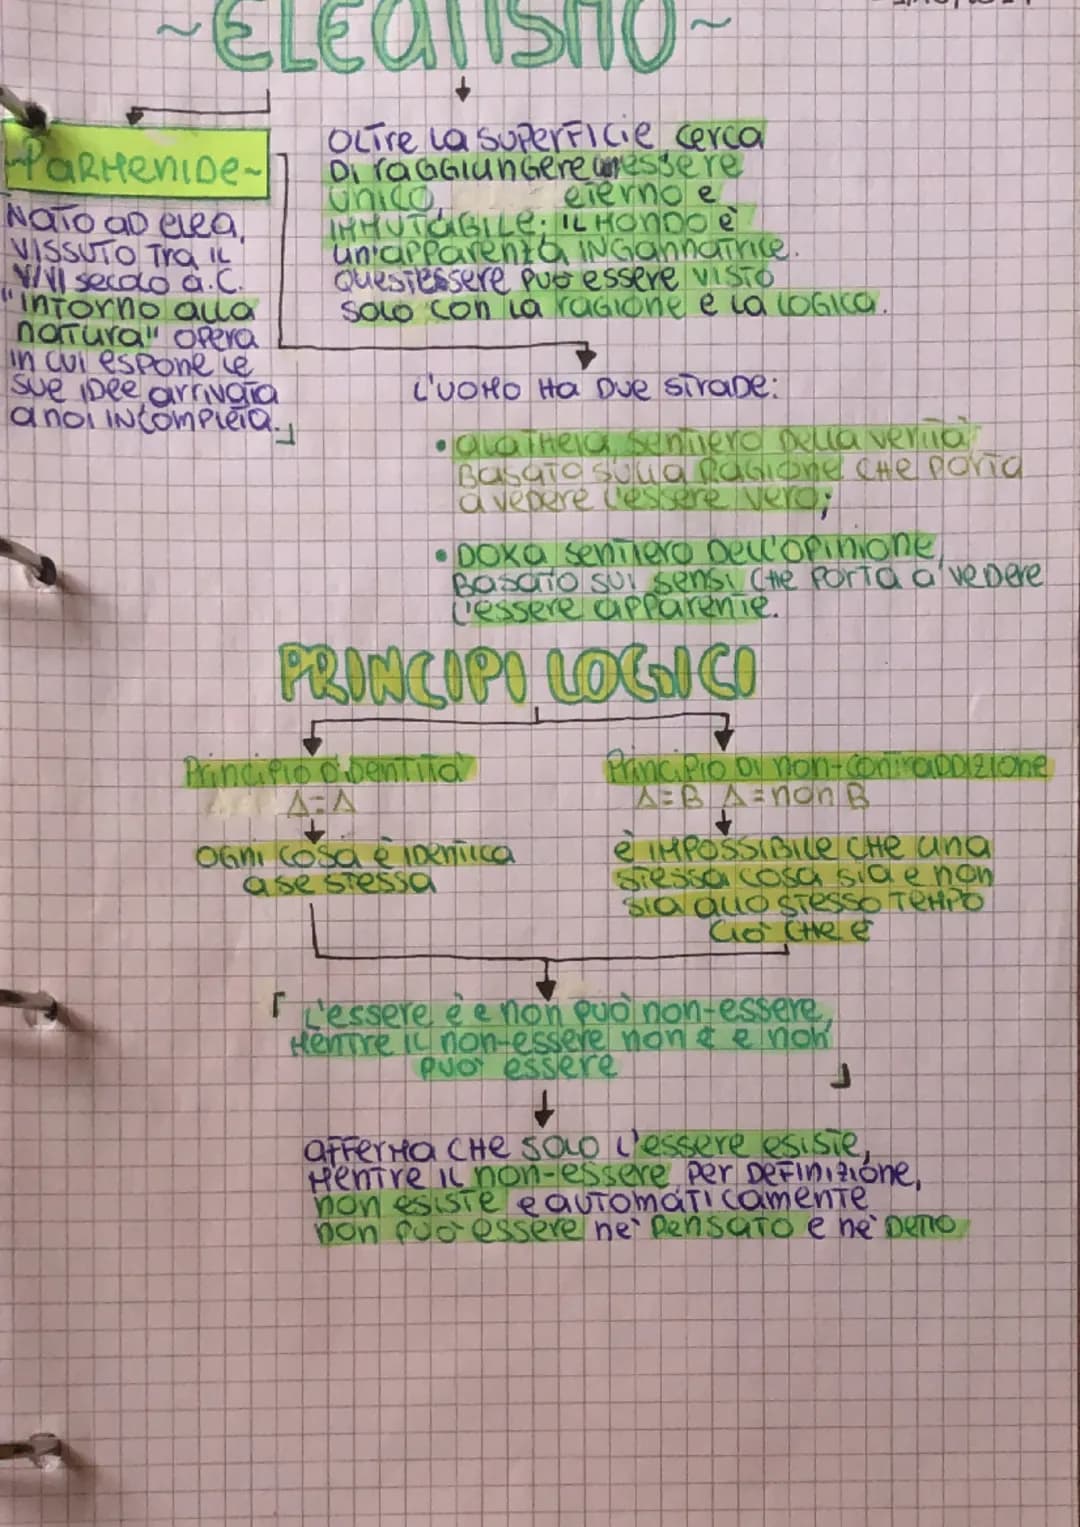 ~ELEATISMO~
~PARMENIDE~
NATO AD ELEA,
VISSUTO TRA IL
V/VI secolo a.C.
"INTORNO alla
natura" opera
in cui espone le
sue idee, arrivata
a noi incompleta.
OLTRE LA SUPERFICIE cerca
DI raggiungere un essere
unico, eterno e
IMMUTABILE: IL MONDO è
un'apparenza INGANNATRICE.
quest'essere può essere visto
solo con la ragione e la logica.
L'UOMO HA DUE STRADE:
• alatheia sentiero della verità
Basato sulla Ragione CHE porta
a vedere l'essere vero;
• DOXA sentiero Dell'opinione,
Basato sui sensi CHE porta a vedere
l'essere apparente.
PRINCIPI LOGICI
Principio d'identità
A=A
OGNI cosa è identica
a se stessa
Principio di non-contraddizione
A=B A=non B
è IMPOSSIBILE CHE una
stessa cosa sia e non
sia allo stesso TEMPO
ciò CHE è
L'essere è e non può non-essere,
MENTRE IL non-essere non è e non
può essere
afferma CHE solo l'essere esiste,
MENTRE IL non-essere per DEFINIZIONE,
non esiste e automaticamente
non può essere nè pensato e nè DETTO